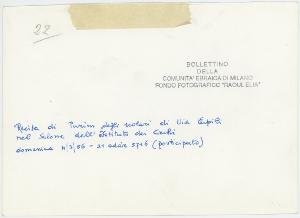 22
BOLLETTINO
DELLA
COMUNITA' EBRAICA DI MILANO
FONDO FOTOGRAFICO "RAOUL ELIA"
Recita di Purim degli scolari di Via Eupili
nel Salone dell'Istituto dei Ciechi
domenica 4/3/56 - 21 adàr 5716 (participato)